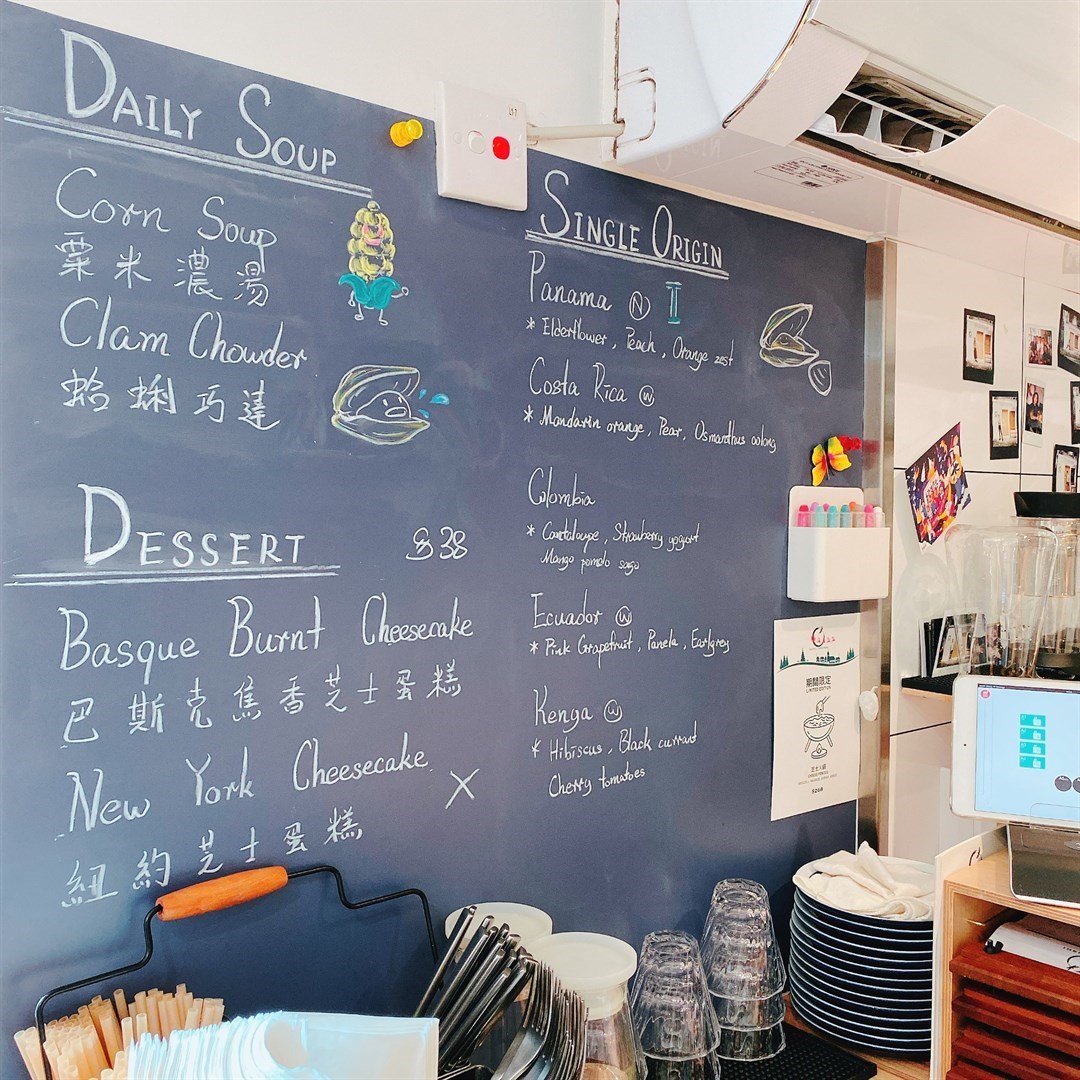 DAILY SOUP
Corn Soup
粟米濃湯
Clam Chowder
蛤蜊巧達
DESSERT $38
Basque Burnt Cheesecake
巴斯克焦香芝士蛋糕
New York Cheesecake X
紐約芝士蛋糕
SINGLE ORIGIN
Panama Ⓝ I
* Elderflower, Peach, Orange zest
Costa Rica Ⓦ
* Mandarin orange, Pear, Osmanthus oolong
Colombia
* Cantaloupe, Strawberry yogurt
Mango pomelo sago
Ecuador Ⓦ
* Pink Grapefruit, Panela, Earlgrey
Kenya Ⓦ
* Hibiscus, Black currant
Cherry tomatoes
期間限定
LIMITED EDITION
芝士火鍋